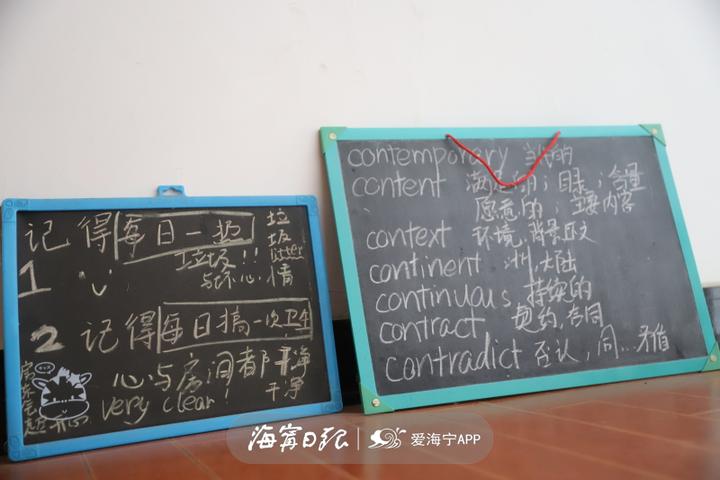 记得每日一
垃圾!!
与坏心情
垃圾
1
2 记得每日搞一次卫生
心与房间都干净
干净
very clear!
开心
contemporary 当代的
content 满意的; 目录; 含量
愿意的; 主要内容
context 环境,背景
continent 洲,大陆
continuous 持续的
contract 契约,合同
contradict 否认,同...矛盾
海宁日报 爱海宁APP